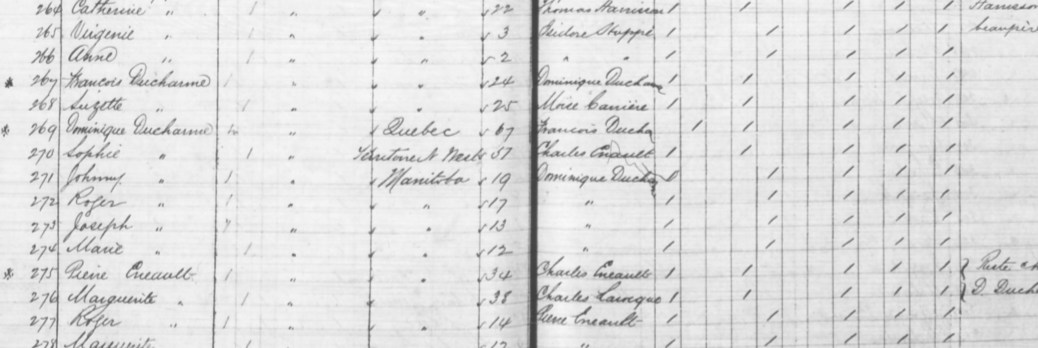 264 Catherine " 1 " " " 22 Thomas Harrison 1 1 1 1 1 1 Harrison
265 Virginie " 1 " " " 3 Isidore 1 1 1 1 1 1 beaupère
266 Anne " 1 " " " 2 " " 1 1 1 1 1 1
267 Francois Ducharme 1 " " " 24 Dominique Ducharme 1 1 1 1 1 1
268 Suzette " 1 " " " 25 Moise Carrière 1 1 1 1 1 1
269 Dominique Ducharme " Quebec 67 Francois Ducha 1 1 1 1 1
270 Sophie " 1 " N West 57 Charles 1 1 1 1 1 1
271 Johnny " 1 " Manitoba 19 Dominique Duchar 1 1 1 1 1
272 Roger " 1 " " 17 " 1 1 1 1 1 1
273 Joseph " " " 13 " 1 1 1 1 1 1
274 Marie " 1 " " 12 " 1 1 1 1 1 1
275 Pierre Eneault 1 " " 34 Charles Eneault 1 1 1 1 1 1
276 Marguerite " 1 " " 38 Charles Larocque 1 1 1 1 1 1 D. Duch
277 Roger " 1 " " 14 Pierre Eneault 1 1 1 1 1
278 Marguerite 12 "